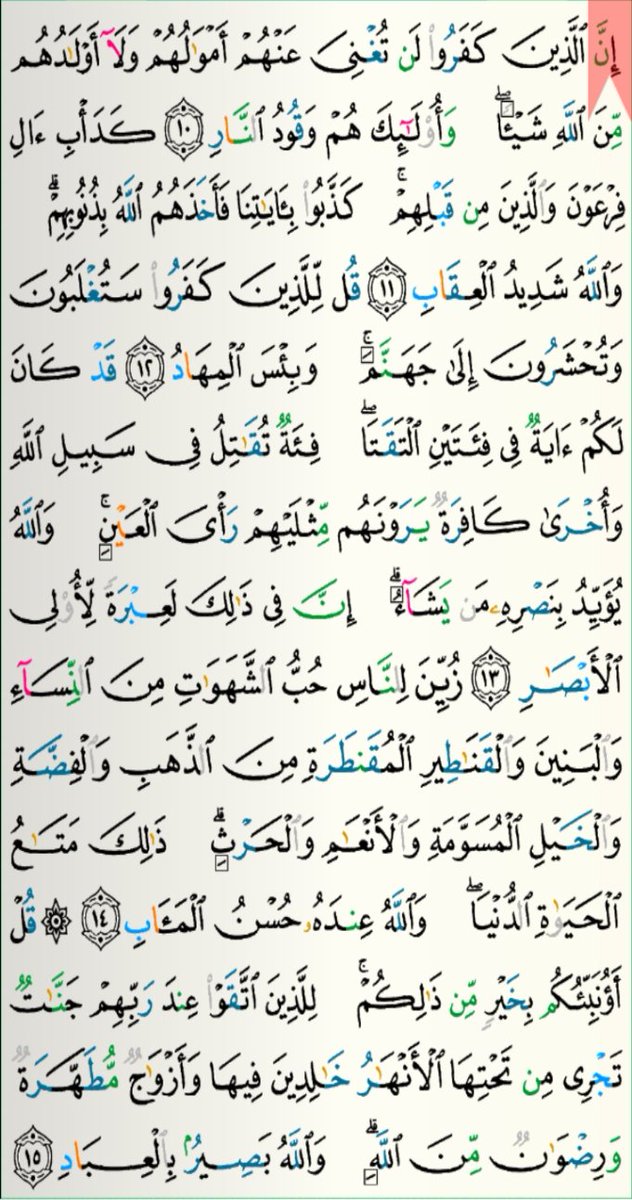 إِنَّ ٱلَّذِينَ كَفَرُوا۟ لَن تُغْنِىَ عَنْهُمْ أَمْوَٰلُهُمْ وَلَآ أَوْلَـٰدُهُم
مِّنَ ٱللَّهِ شَيْـًٔا ۖ وَأُو۟لَـٰٓئِكَ هُمْ وَقُودُ ٱلنَّارِ ١٠ كَدَأْبِ ءَالِ
فِرْعَوْنَ وَٱلَّذِينَ مِن قَبْلِهِمْ ۚ كَذَّبُوا۟ بِـَٔايَـٰتِنَا فَأَخَذَهُمُ ٱللَّهُ بِذُنُوبِهِمْ ۗ
وَٱللَّهُ شَدِيدُ ٱلْعِقَابِ ١١ قُل لِّلَّذِينَ كَفَرُوا۟ سَتُغْلَبُونَ
وَتُحْشَرُونَ إِلَىٰ جَهَنَّمَ ۚ وَبِئْسَ ٱلْمِهَادُ ١٢ قَدْ كَانَ
لَكُمْ ءَايَةٌ فِى فِئَتَيْنِ ٱلْتَقَتَا ۖ فِئَةٌ تُقَـٰتِلُ فِى سَبِيلِ ٱللَّهِ
وَأُخْرَىٰ كَافِرَةٌ يَرَوْنَهُم مِّثْلَيْهِمْ رَأْىَ ٱلْعَيْنِ ۚ وَٱللَّهُ
يُؤَيِّدُ بِنَصْرِهِۦ مَن يَشَآءُ ۗ إِنَّ فِى ذَٰلِكَ لَعِبْرَةً لِّأُو۟لِى
ٱلْأَبْصَـٰرِ ١٣ زُيِّنَ لِلنَّاسِ حُبُّ ٱلشَّهَوَٰتِ مِنَ ٱلنِّسَآءِ
وَٱلْبَنِينَ وَٱلْقَنَـٰطِيرِ ٱلْمُقَنطَرَةِ مِنَ ٱلذَّهَبِ وَٱلْفِضَّةِ
وَٱلْخَيْلِ ٱلْمُسَوَّمَةِ وَٱلْأَنْعَـٰمِ وَٱلْحَرْثِ ۗ ذَٰلِكَ مَتَـٰعُ
ٱلْحَيَوٰةِ ٱلدُّنْيَا ۖ وَٱللَّهُ عِندَهُۥ حُسْنُ ٱلْمَـَٔابِ ١٤ ۞ قُلْ
أَؤُنَبِّئُكُم بِخَيْرٍ مِّن ذَٰلِكُمْ ۚ لِلَّذِينَ ٱتَّقَوْا۟ عِندَ رَبِّهِمْ جَنَّـٰتٌ
تَجْرِى مِن تَحْتِهَا ٱلْأَنْهَـٰرُ خَـٰلِدِينَ فِيهَا وَأَزْوَٰجٌ مُّطَهَّرَةٌ
وَرِضْوَٰنٌ مِّنَ ٱللَّهِ ۗ وَٱللَّهُ بَصِيرٌۢ بِٱلْعِبَادِ ١٥